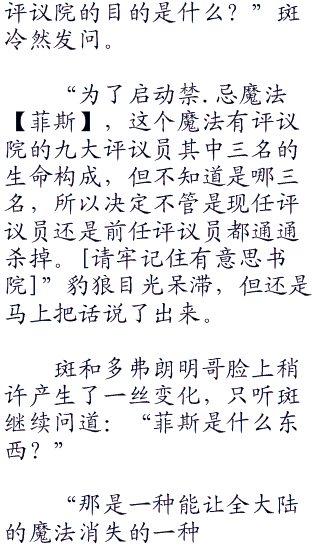 评议院的目的是什么？”斑
冷然发问。
“为了启动禁.忌魔法
【菲斯】，这个魔法有评议
院的九大评议员其中三名的
生命构成，但不知道是哪三
名，所以决定不管是现任评
议员还是前任评议员都通通
杀掉。[请牢记住有意思书
院]”豹狼目光呆滞，但还是
马上把话说了出来。
斑和多弗朗明哥脸上稍
许产生了一丝变化，只听斑
继续问道：“菲斯是什么东
西？”
“那是一种能让全大陆
的魔法消失的一种